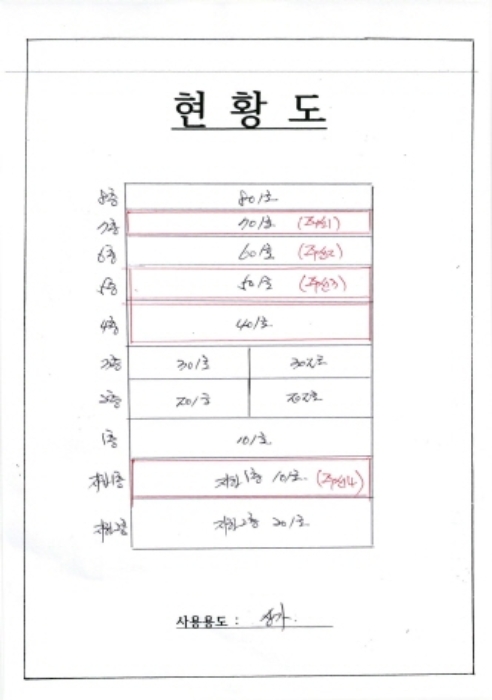 현 황 도
8층 801호
7층 701호 (주선1)
6층 601호 (주선2)
5층 501호 (주선3)
4층 401호
3층 301호 302호
2층 201호 202호
1층 101호
지하1층 지하1층 101호 (주선4)
지하2층 지하2층 201호
사용용도 : 상가.